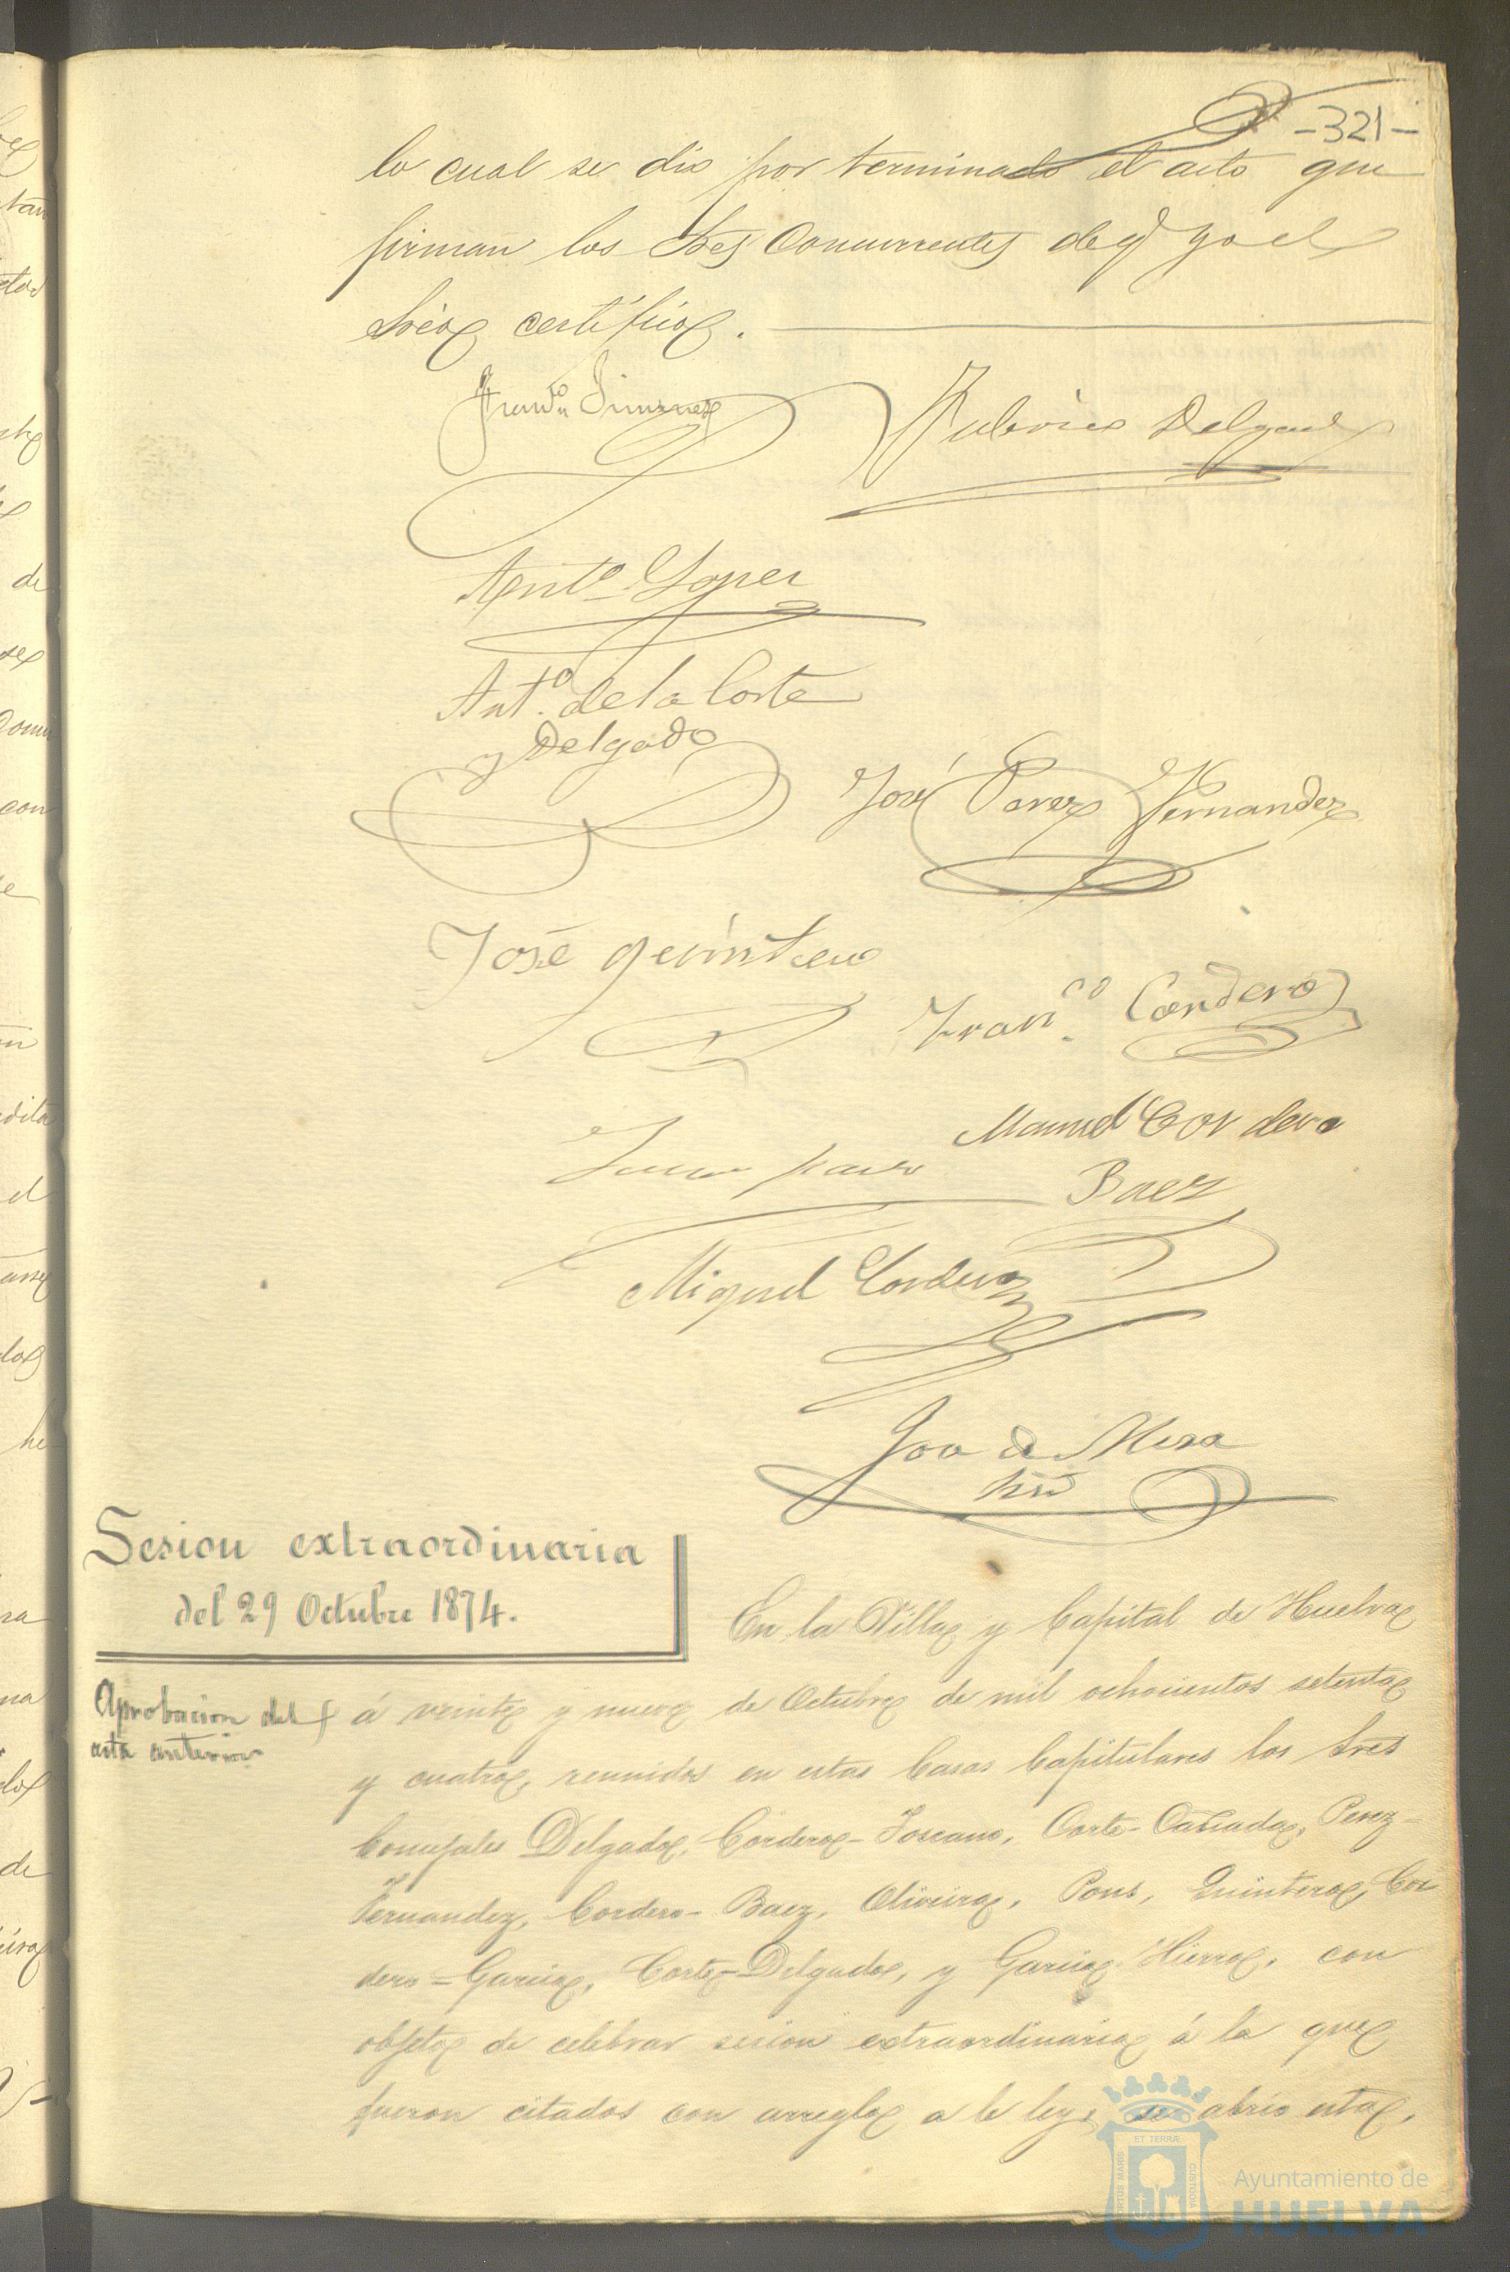 -321-
lo cual se dio por terminado el acto que
firman los Sres Concurrentes de q̃ yo el
Srio certifico.
Juan Jimenez
Federico Delgado
Antº Lopez
Antº de la Corte
y Delgado
José Perez Fernandez
José Quintero
Franco. Cordero
Manuel Cordero
Baez
Miguel Cordero
de Mesa
Sesion extraordinaria
del 29 Octubre 1874.
En la Villa y Capital de Huelva
Aprobacion del
acta anterior
á veinte y nueve de Octubre de mil ochocientos setenta
y cuatro, reunidos en estas Casas Capitulares los Sres
Concejales Delgado, Cordero-Toscano, Corte-Cañada, Perez-
Fernandez, Cordero-Baez, Oliveira, Pons, Quintero, Cor
dero=Garcia, Corte-Delgado, y Garcia Hierro, con
objeto de celebrar sesion extraordinaria á la que
fueron citados con arreglo a la ley, se abrio esta,
PORTUS MARIS
ET TERRÆ
CUSTODIA
Ayuntamiento de
HUELVA